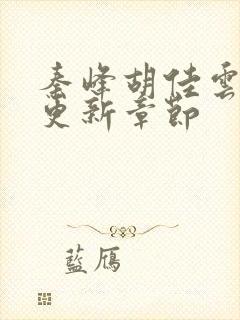 秦峰胡佳雲
更新章節
藍雁